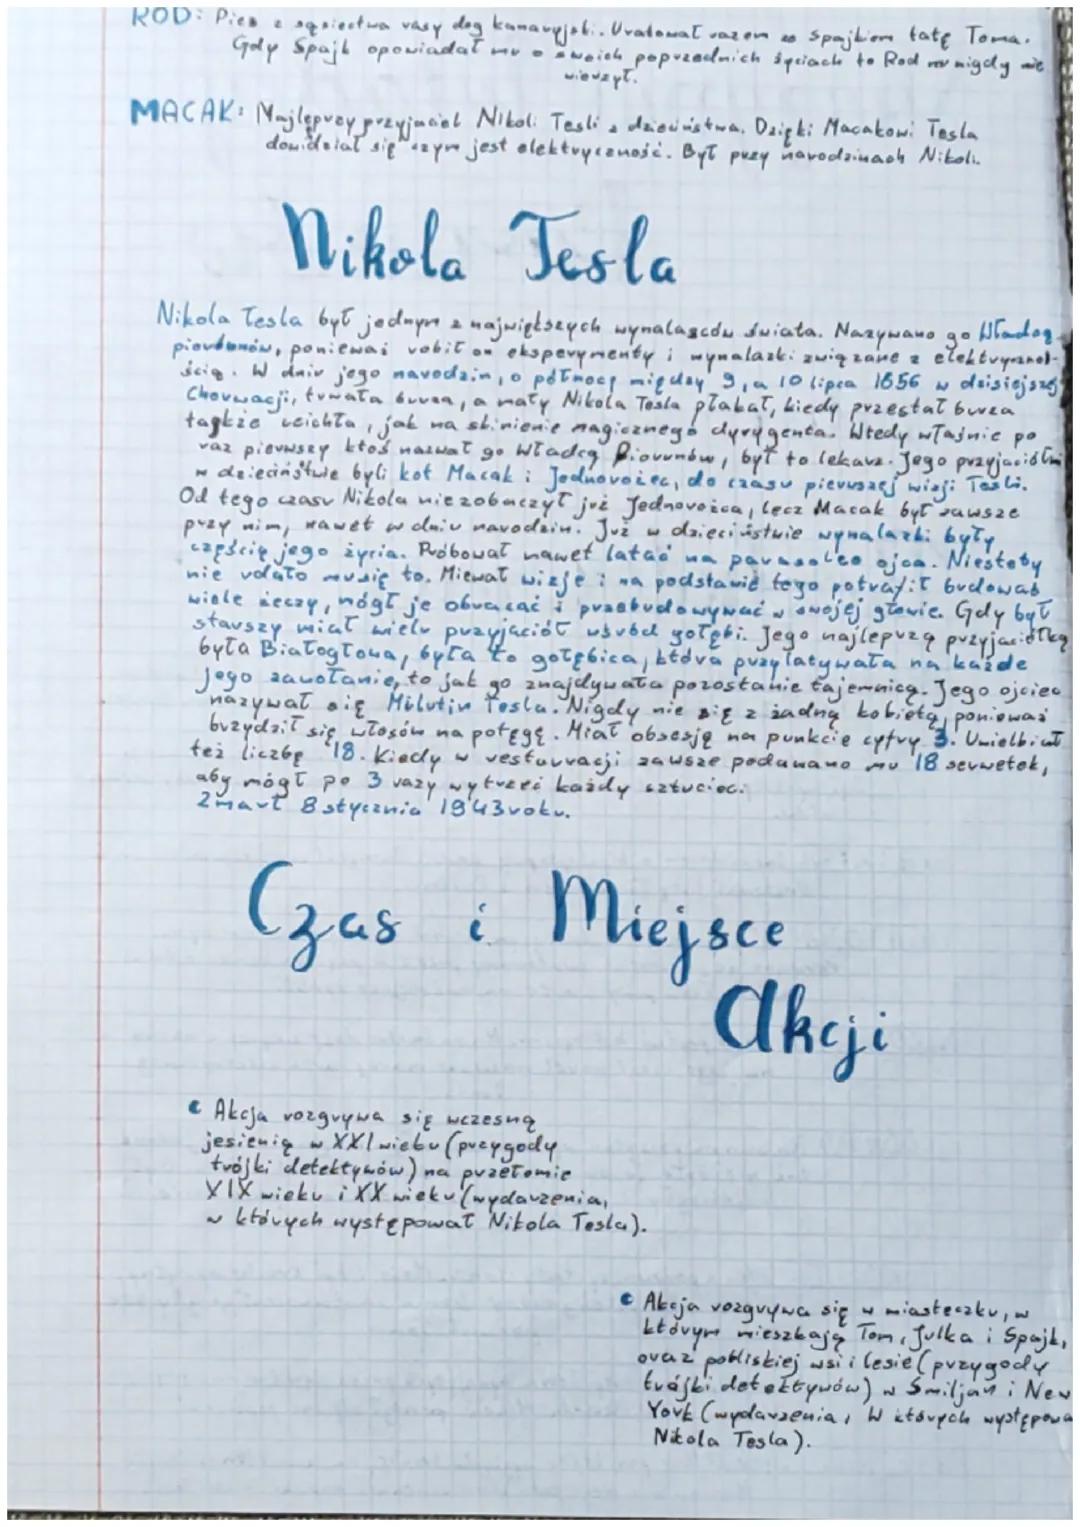 ROD: Pies z sąsiedztwa rasy dog kanaryjski. Uratował razem ze Spajkiem tatę Toma.
Gdy Spajk opowiadał mu o swoich poprzednich życiach to Rod mu nigdy nie
wierzył.
MACAK: Najlepszy przyjaciel Nikoli Tesli z dzieciństwa. Dzięki Macakowi Tesla
dowidział się czym jest elektryczność. Był przy narodzinach Nikoli.
Nikola Tesla
Nikola Tesla był jednym z największych wynalazców świata. Nazywano go Władcą
piorunów, ponieważ robił on eksperymenty i wynalazki związane z elektryczno-
ścią. W dniu jego narodzin, o północy między 9, a 10 lipca 1856 w dzisiejszej
Chorwacji, trwała burza, a mały Nikola Tesla płakał, kiedy przestał burza
także ucichła, jak na skinienie magicznego dyrygenta. Wtedy właśnie po
raz pierwszy ktoś nazwał go Władcą Piorunów, był to lekarz. Jego przyjaciółmi
w dzieciństwie byli kot Macak i Jednorożec, do czasu pierwszej wizji Tesli.
Od tego czasu Nikola nie zobaczył już Jednorożca, lecz Macak był zawsze
przy nim, nawet w dniu narodzin. Już w dzieciństwie wynalazki były
częścią jego życia. Próbował nawet latać na parasolce ojca. Niestety
nie udało mu się to. Miewał wizje i na podstawie tego potrafił budować
wiele rzeczy, mógł je obracać i przebudowywać w swojej głowie. Gdy był
starszy miał wielu przyjaciół wśród gołębi. Jego najlepszą przyjaciółką
była Białogłowa, była to gołębica, która przylatywała na każde
jego zawołanie, to jak go znajdywała pozostanie tajemnicą. Jego ojciec
nazywał się Milutin Tesla. Nigdy nie się z żadną kobietą, ponieważ
brzydził się włosów na potęgę. Miał obsesję na punkcie cyfry 3. Uwielbiał
też liczbę 18. Kiedy w restauracji zawsze podawano mu 18 serwetek,
aby mógł po 3 razy wytrzeć każdy sztuciec.
Zmarł 8 stycznia 1943 roku.
Czas i Miejsce
Akcji
Akcja rozgrywa się wczesną
jesienią w XXI wieku (przygody
trójki detektywów) na przełomie
XIX wieku i XX wieku (wydarzenia,
w których występował Nikola Tesla).
Akcja rozgrywa się w miasteczku, w
którym mieszkają Tom, Julka i Spajk,
oraz pobliskiej wsi i lesie (przygody
trójki detektywów) w Smiljan i New
York (wydarzenia, w których występowa
Nikola Tesla).